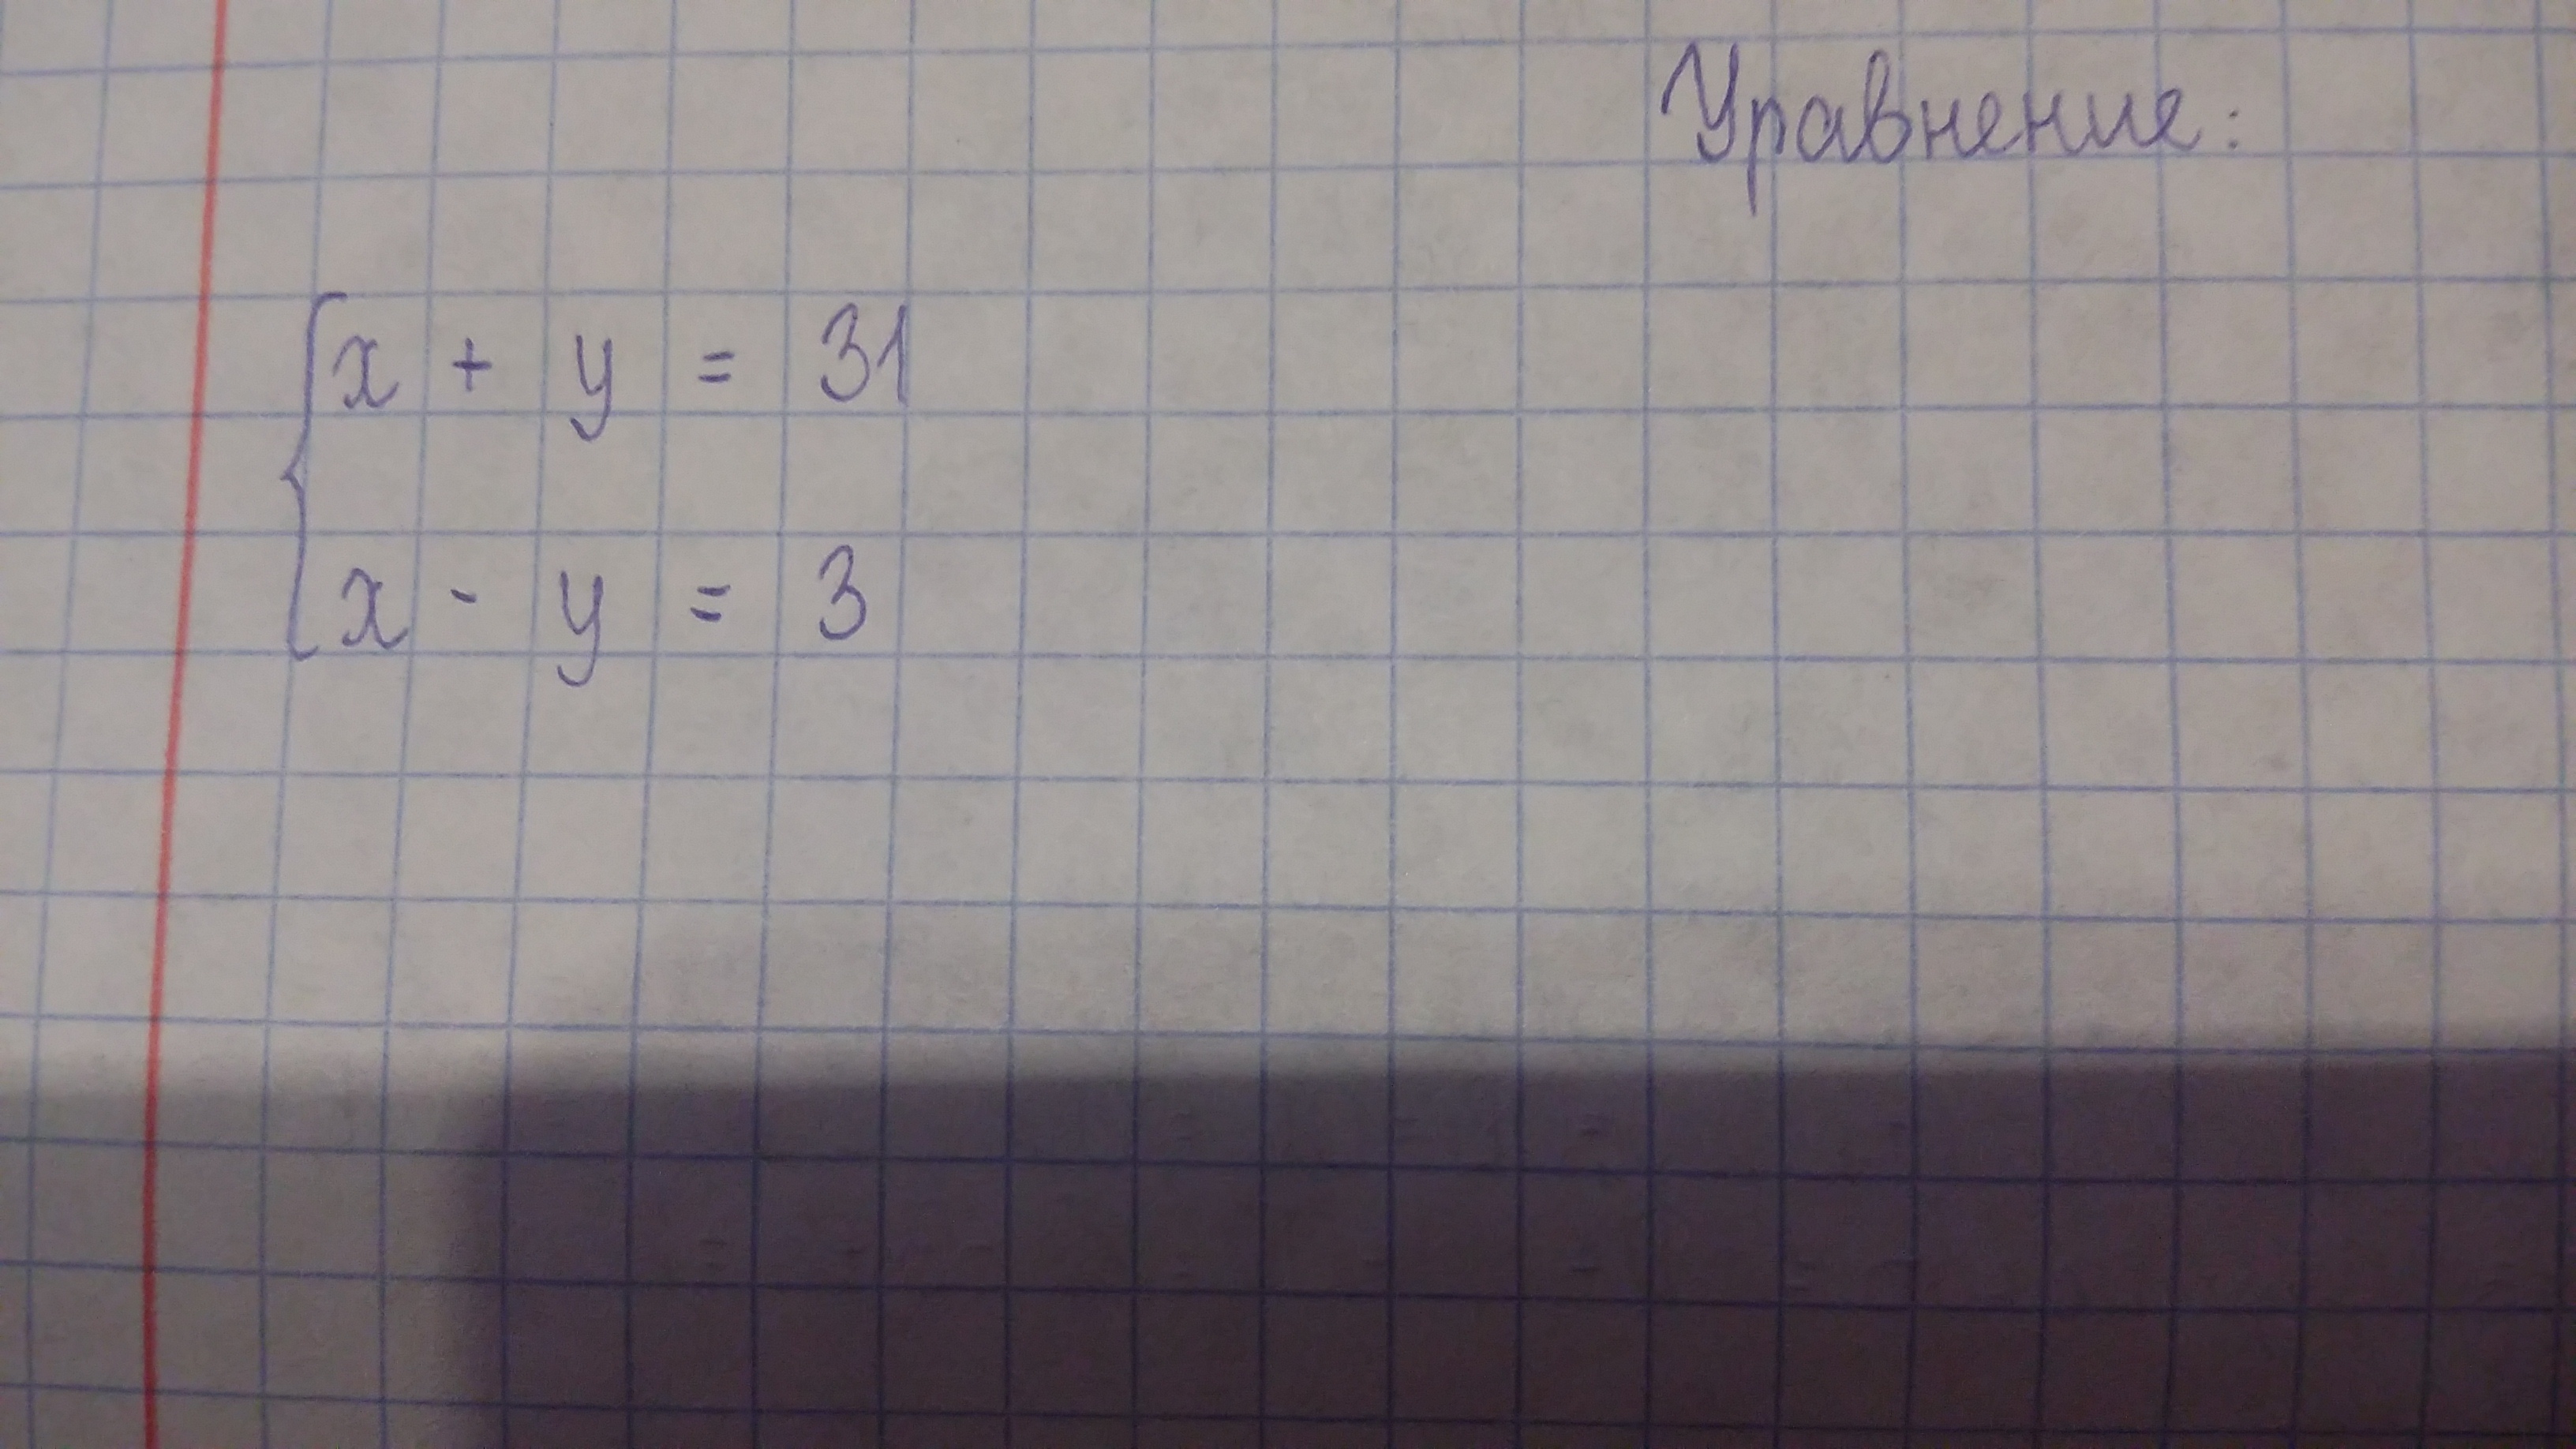 Уравнение:
x + y = 31
x - y = 3